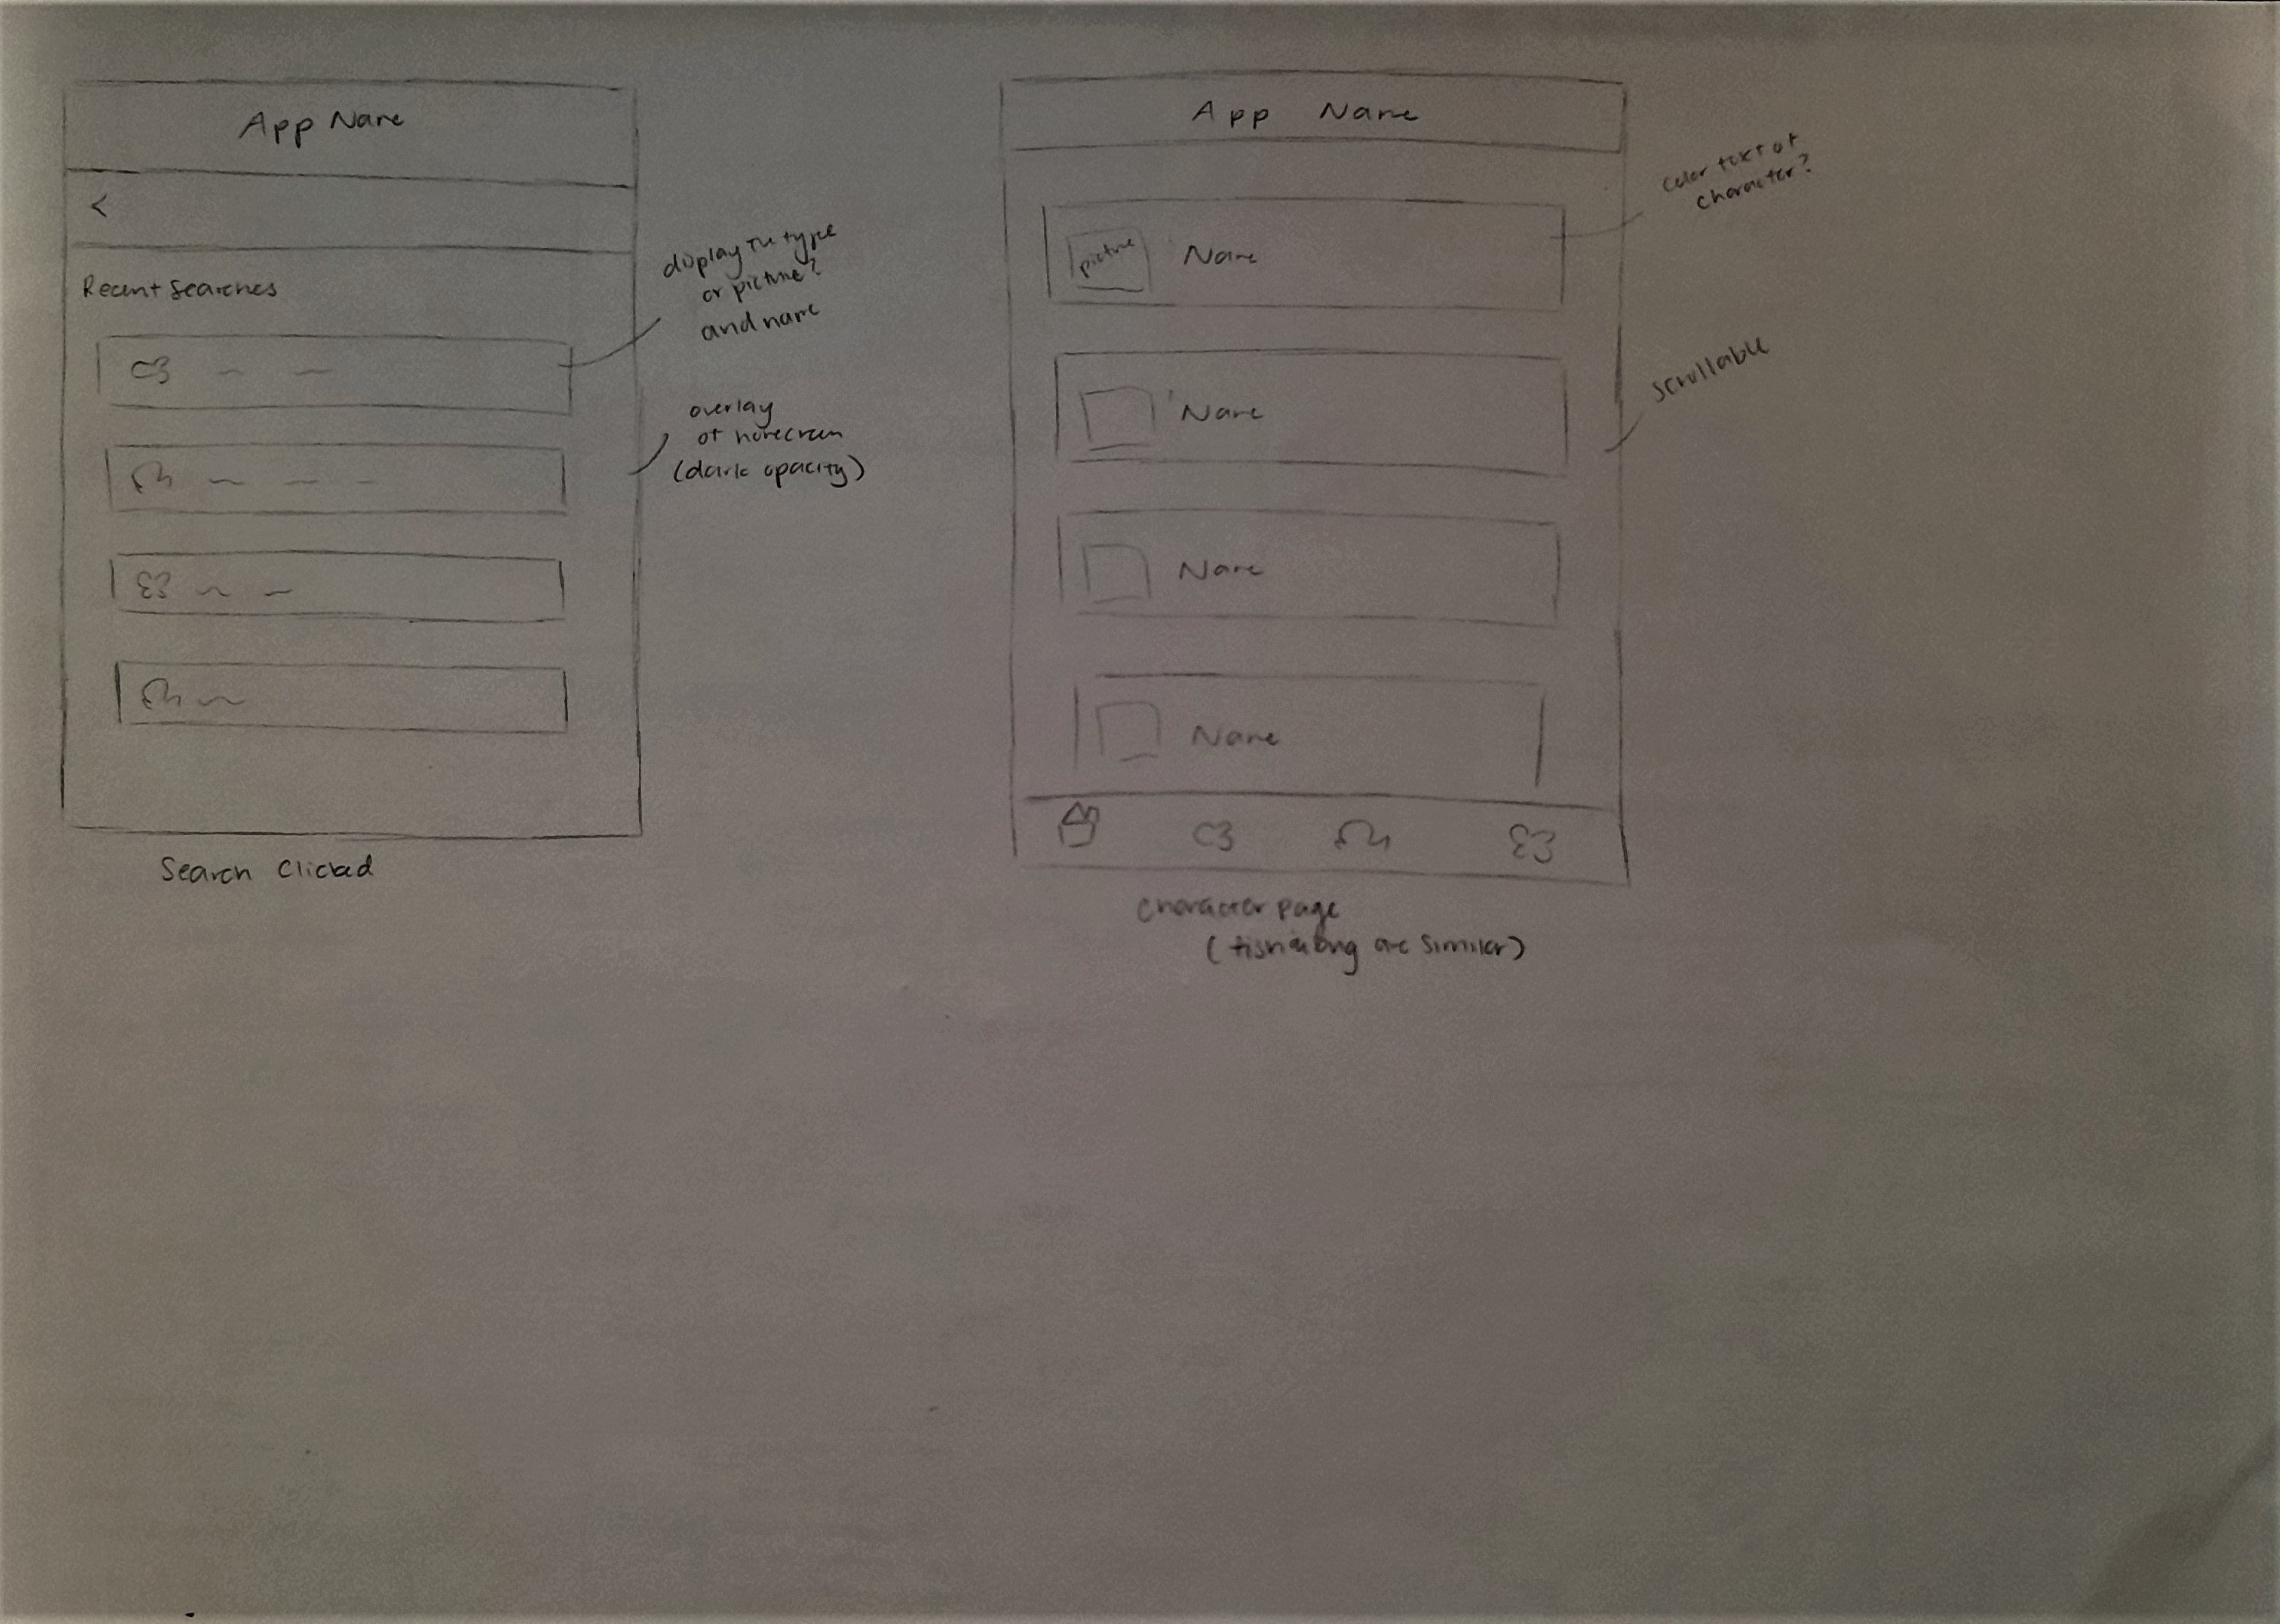 App Name
<
Recent Searches
display the type
or picture?
and name
overlay
of homescreen
(dark opacity)
Search Clicked
App Name
picture
Name
Name
Name
Name
color text of
character?
scrollable
character page
( are similar)